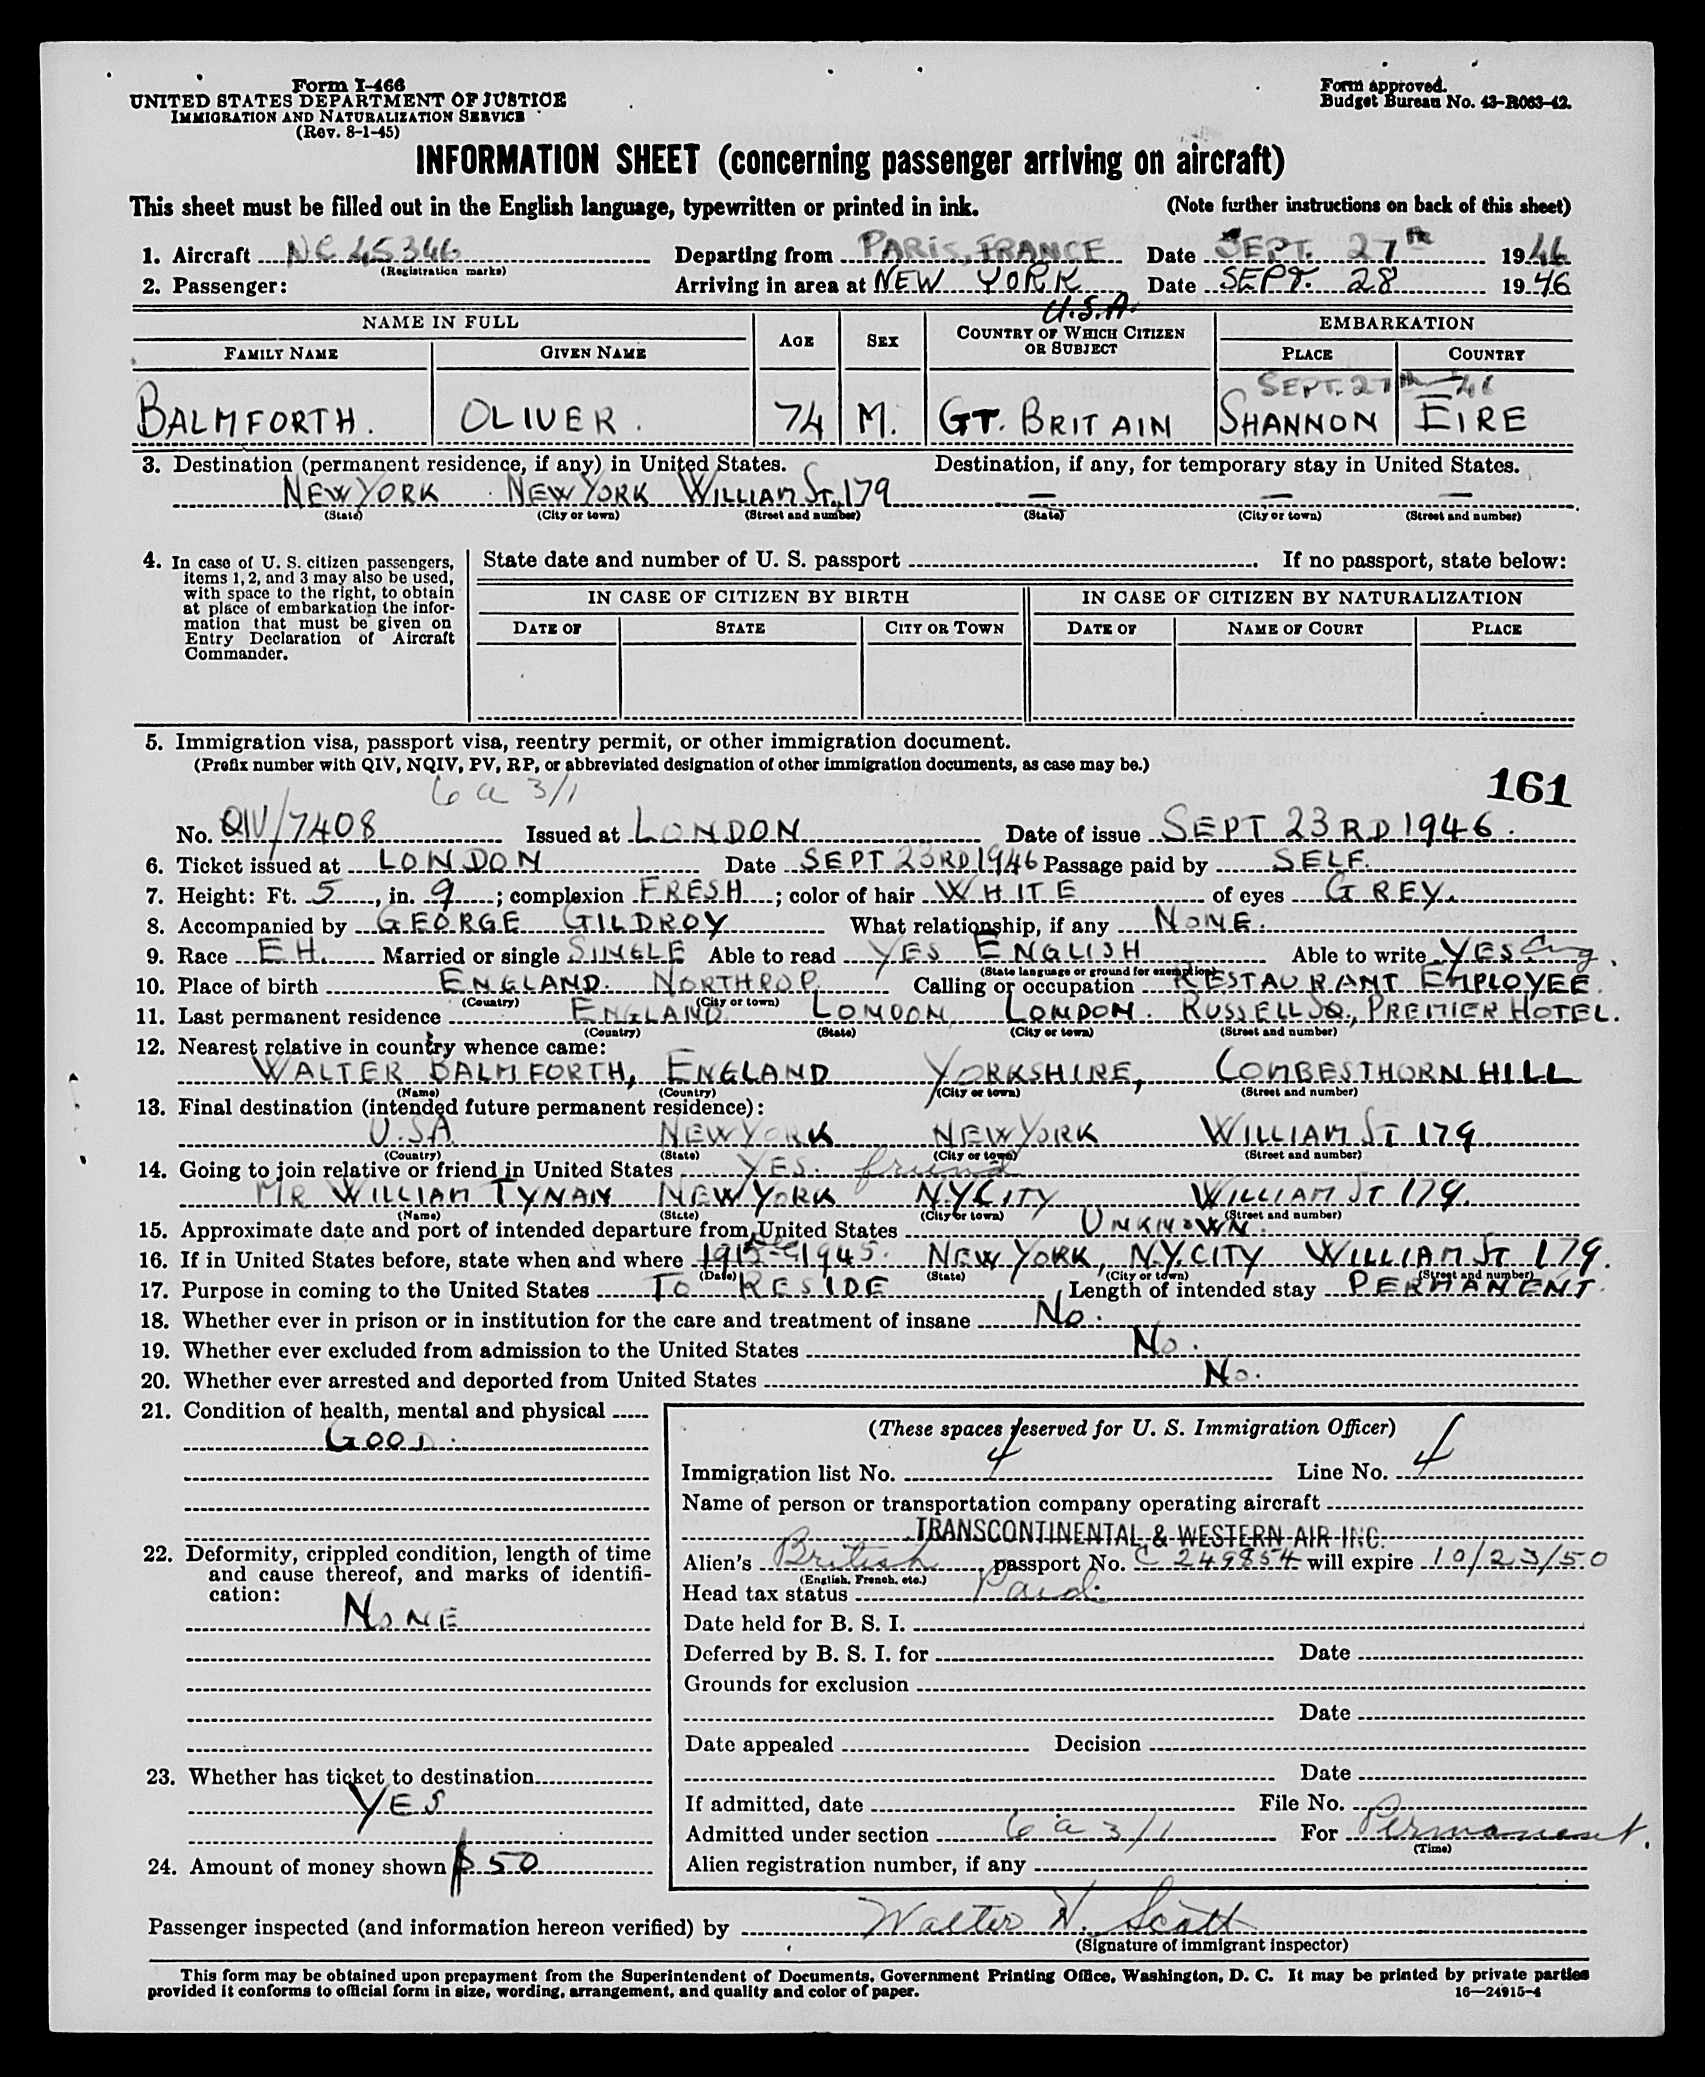 Form I-466
UNITED STATES DEPARTMENT OF JUSTICE
IMMIGRATION AND NATURALIZATION SERVICE
(Rev. 8-1-45)
Form approved.
Budget Bureau No. 43-R063-42.
INFORMATION SHEET (concerning passenger arriving on aircraft)
This sheet must be filled out in the English language, typewritten or printed in ink. (Note further instructions on back of this sheet)
1. Aircraft NC 45346 Departing from PARIS, FRANCE Date SEPT. 27TH 1946
(Registration marks)
2. Passenger: Arriving in area at NEW YORK Date SEPT. 28 1946
U.S.A.
NAME IN FULL AGE SEX COUNTRY OF WHICH CITIZEN OR SUBJECT EMBARKATION
FAMILY NAME GIVEN NAME PLACE COUNTRY
SEPT. 27th 46
BALMFORTH. OLIVER. 74 M. GT. BRITAIN SHANNON EIRE
3. Destination (permanent residence, if any) in United States. Destination, if any, for temporary stay in United States.
NEW YORK NEW YORK WILLIAM ST., 179 — — —
(State) (City or town) (Street and number) (State) (City or town) (Street and number)
4. In case of U. S. citizen passengers, items 1, 2, and 3 may also be used, with space to the right, to obtain at place of embarkation the information that must be given on Entry Declaration of Aircraft Commander.
State date and number of U. S. passport. If no passport, state below:
IN CASE OF CITIZEN BY BIRTH IN CASE OF CITIZEN BY NATURALIZATION
DATE OF STATE CITY OR TOWN DATE OF NAME OF COURT PLACE
5. Immigration visa, passport visa, reentry permit, or other immigration document.
(Prefix number with QIV, NQIV, PV, RP, or abbreviated designation of other immigration documents, as case may be.)
6 a 3/1
161
No. QIV/7408 Issued at LONDON Date of issue SEPT 23RD 1946.
6. Ticket issued at LONDON Date SEPT 23RD 1946 Passage paid by SELF.
7. Height: Ft. 5, in. 9; complexion FRESH; color of hair WHITE of eyes GREY.
8. Accompanied by GEORGE GILDROY What relationship, if any NONE.
9. Race EH. Married or single SINGLE Able to read YES ENGLISH Able to write YES Eng.
(State language or ground for exemption)
10. Place of birth ENGLAND. NORTHROP. Calling or occupation RESTAURANT EMPLOYEE.
(Country) (City or town)
11. Last permanent residence ENGLAND. LONDON LONDON. RUSSELL SQ., PREMIER HOTEL.
(Country) (State) (City or town) (Street and number)
12. Nearest relative in country whence came:
WALTER BALMFORTH, ENGLAND YORKSHIRE, COMBESTHORN HILL
(Name) (Country) (City or town) (Street and number)
13. Final destination (intended future permanent residence):
U.S.A NEW YORK NEW YORK WILLIAM ST 179
(Country) (State) (City or town) (Street and number)
14. Going to join relative or friend in United States YES. friend
MR WILLIAM TYNAN NEW YORK N.Y.CITY WILLIAM ST 179.
(Name) (State) (City or town) (Street and number)
15. Approximate date and port of intended departure from United States UNKNOWN.
16. If in United States before, state when and where 1945. NEW YORK, N.Y.CITY WILLIAM ST 179.
(Date) (State) (City or town) (Street and number)
17. Purpose in coming to the United States TO RESIDE Length of intended stay PERMANENT.
18. Whether ever in prison or in institution for the care and treatment of insane NO.
19. Whether ever excluded from admission to the United States NO.
20. Whether ever arrested and deported from United States NO.
21. Condition of health, mental and physical
GOOD.
22. Deformity, crippled condition, length of time and cause thereof, and marks of identification:
NONE
23. Whether has ticket to destination
YES
24. Amount of money shown $50
(These spaces reserved for U. S. Immigration Officer)
Immigration list No. 4 Line No. 4
Name of person or transportation company operating aircraft
TRANSCONTINENTAL & WESTERN AIR INC.
Alien's British passport No. C 249854 will expire 10/23/50
(English, French, etc.)
Head tax status Paid.
Date held for B. S. I.
Deferred by B. S. I. for Date
Grounds for exclusion
Date
Date appealed Decision
Date
If admitted, date File No.
Admitted under section 6 a 3/1 For Permanent.
(Time)
Alien registration number, if any
Passenger inspected (and information hereon verified) by Walter H. Scott
(Signature of immigrant inspector)
This form may be obtained upon prepayment from the Superintendent of Documents, Government Printing Office, Washington, D. C. It may be printed by private parties
provided it conforms to official form in size, wording, arrangement, and quality and color of paper. 16—24915-4